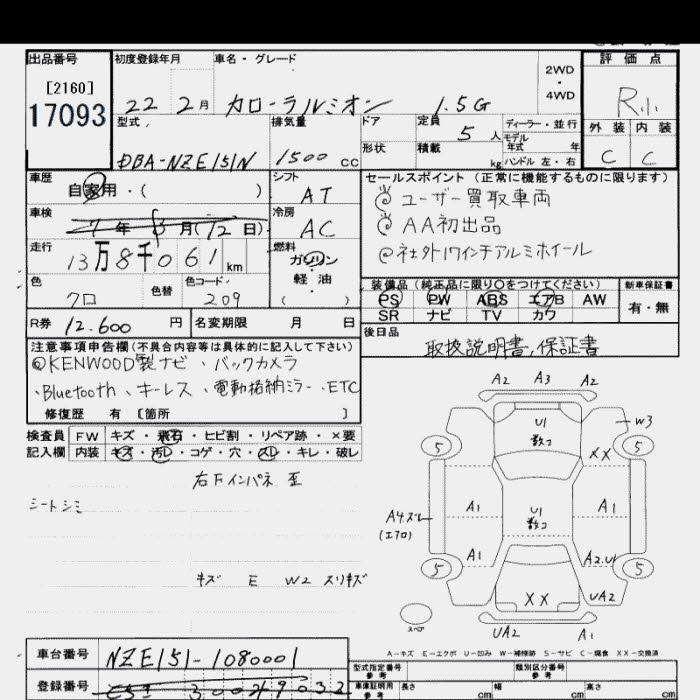 出品番号 初度登録年月 車名・グレード 2WD・4WD 評価点
[2160]
17093 22 2月 カローラルミオン 1.5G R小
型式 排気量 ドア 定員 5人 ディーラー・並行 外装 内装
DBA-NZE151N 1500cc 形状 積載 kg モデル年式 年 ハンドル 左・右 C C
車歴 自家用・( ) シフト AT セールスポイント (正常に機能するものに限ります)
@ユーザー買取車両
車検 7年 月(12日) 冷房 AC @AA初出品
走行 13万8千061km 燃料 ガソリン @社外17インチアルミホイール
軽・油
( )
色 クロ 色替 色コード 209 装備品(純正品に限り○をつけてください) 新車保証書
PS PW ABS エアB AW 有・無
SR ナビ TV カワ
R券 12.600円 名変期限 月 日 後日品
取扱説明書,保証書
注意事項申告欄(不具合内容等は具体的に記入して下さい)
@KENWOOD製ナビ、バックカメラ
、Bluetooth、キーレス、電動格納ミラー、ETC
修復歴 有 [箇所 ]
検査員 FW キズ・飛石・ヒビ割・リペア跡・×要
記入欄 内装 キズ・汚レ・コゲ・穴・スレ・キレ・破レ
右Fインパネ 歪
シートシミ
キズ E W2 スリキズ
A2 A3 A2
U1 数コ
W3
5 XX 5
A1 U1 数コ A1
A4ズレ
(エアロ)
A1 A2.U1
5 5
XX UA2
スペア
UA2 A1
A-キズ E-エクボ U-凹み W-補修跡 S-サビ C-腐食 XX-交換済
車台番号 NZE151-1080001 型式指定番号 参考 類別区分番号 参考
登録番号 車庫証明用 参考 長さ cm 幅 cm 高さ cm